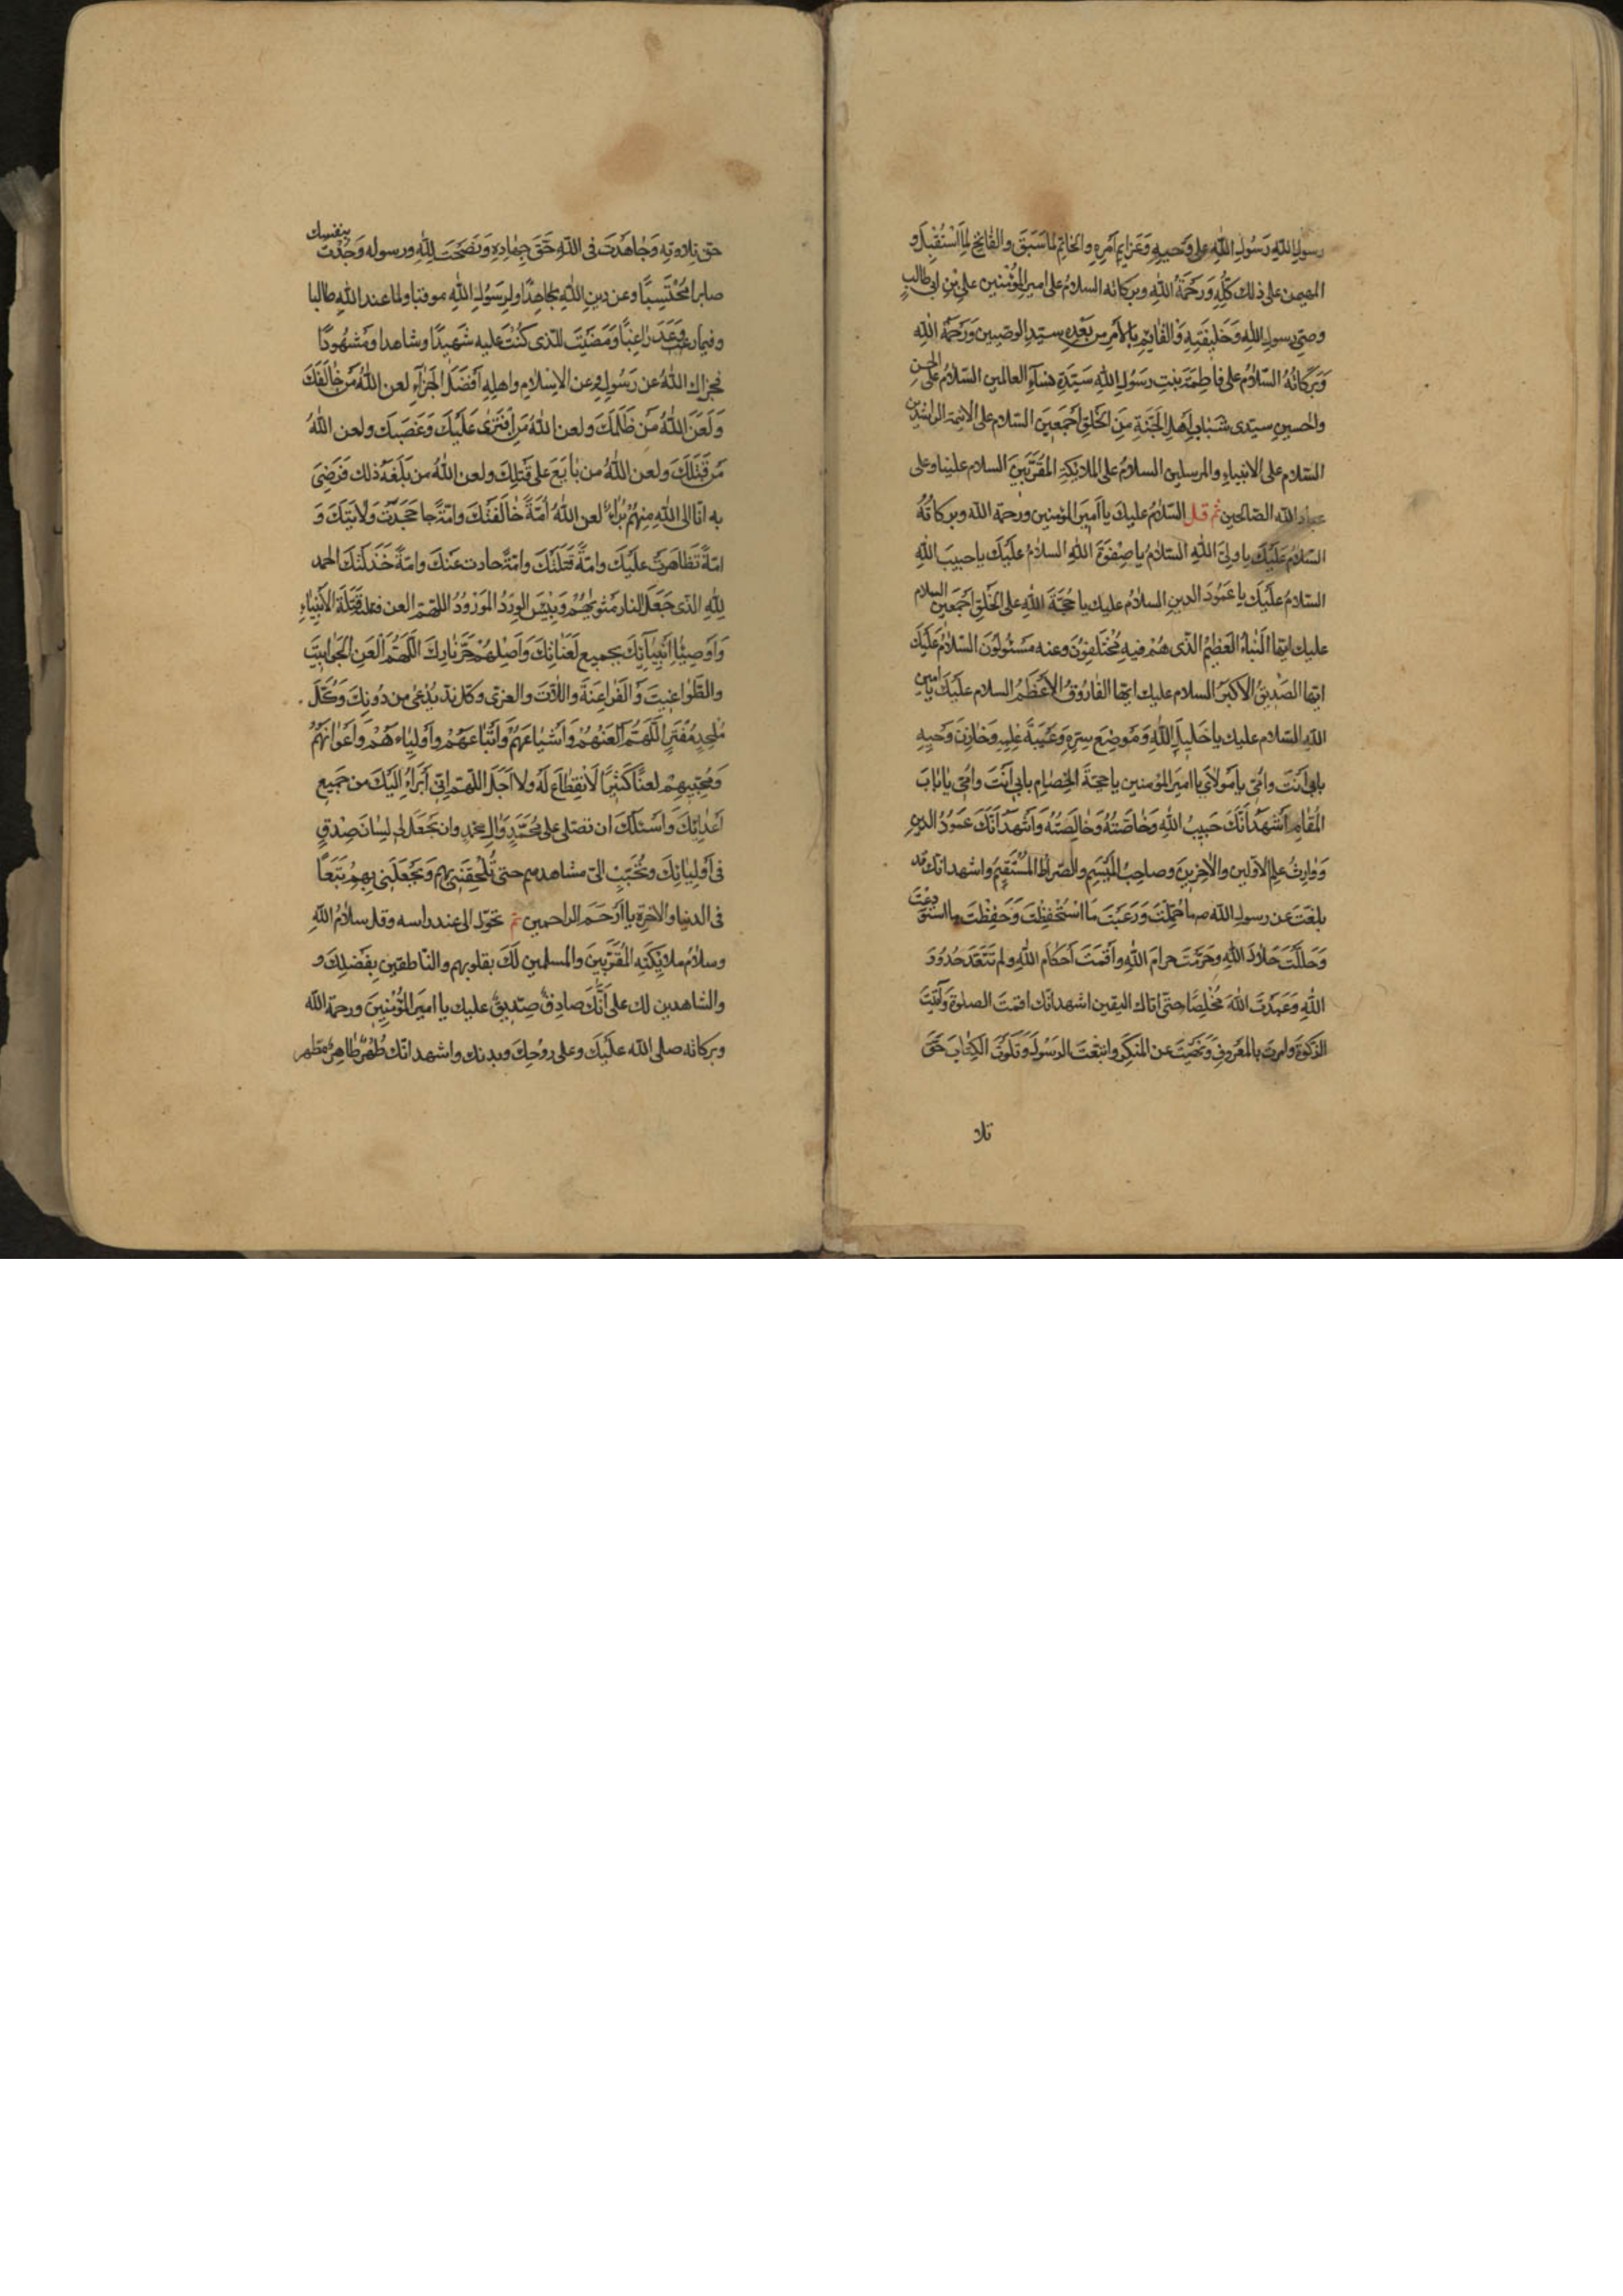 رسولِ اللهِ رَسُولِ اللهِ على وَحيِهِ وَعَزايمِ اَمرِهِ والخاتِمِ لما سَبَقَ والفاتِحِ لِمَا اسْتُقْبِلَ و
المهيمن على ذلك كلِّهِ وَرَحمَةُ اللهِ وبركاته السلامُ على امير المُؤْمنين علىِّ بْنِ ابى طالبٍ
وصىِّ رسولِ اللهِ وَخَليفَتِهِ وَالقائِمِ بِالاَمرِ مِن بَعْدِهِ سيّدِ الوصيين وَرَحمَةُ اللهِ
وَبَرَكاتُهُ السّلامُ على فاطِمَةَ بنتِ رسَوُلِ اللهِ سَيّدَةِ نِسآءِ العالمين السّلامُ على الحسن
والحسين سيّدى شَبابِ اَهلِ الجَنَّةِ مِنَ الخَلقِ اَجمَعينَ السّلام على الائمة الراشدين
السّلام على الانبياءِ والمرسلين السلامُ على الملائِكةِ المُقَرَّبينَ السلام علينا وعلى
عباد الله الصّالحين ثم قل السّلامُ عليك يا اَميرَ المؤمنين ورحمة الله وبركاتُهُ
السّلام عَلَيكَ يا ولىَّ اللهِ السّلامُ يا صِفوَةَ اللهِ السلامُ عَلَيكَ يا حبيبَ اللهِ
السّلامُ عَلَيكَ يا عَمُودَ الدينِ السلامُ عليك يا حُجَّةَ اللهِ على الخَلقِ اَجمَعينَ السلام
عليك ايّها النَّباءُ العَظيمُ الذّى هُمْ فيهِ مُخْتَلِفوُنَ وعنه مَسْئولُونَ السّلامُ عَلَيكَ
ايّها الصّدّيقُ الاَكبَرُ السلام عليك ايّها الفارُوقُ الاَعْظَمُ السلام عَلَيكَ يا امين
اللهِ السّلام عليك يا خَليلَ اللهِ وَمَوضِعَ سِرِّهِ وَعَيبَةَ عِلمِهِ وَخازِنَ وَحيِهِ
بابى اَنتَ وامّى يا مَولاىَ يا اميرَ المؤمنين يا حجّةَ الخِصامِ بابى اَنْتَ وامّى يا بابَ
المُقامِ اَشهَدُ اَنَّكَ حَبيبُ اللهِ وَخاصَّتُهُ وَخالِصَتُهُ وَاَشهَدُ اَنَّكَ عَمُودُ الدين
وَوارِثُ عِلمِ الاوّلين والآخِرينَ وصاحِبُ المَيسَمِ والصّراطُ المُستَقيمُ واشهد انّك قد
بلغتَ عن رسول الله ص ما حُمِّلتَ وَرَعَيتَ مَا اسْتُحْفِظْتَ وَحَفِظْتَ ما استودِعْتَ
وَحَلَّلتَ حَلالَ اللهِ وحَرَّمتَ حرامَ اللهِ واَقَمتَ اَحكامَ اللهِ ولم تتَعَدَّ حُدُودَ
اللهِ وَعَبَدتَ اللهَ مُخْلِصًا حتّى اتاك اليقين اشهد انّك اقمتَ الصلوةَ وآتَيتَ
الزكوةَ وامرت بالمَعْروفِ وَنَهَيتَ عن المُنكَرِ واتّبعتَ الرسُولَ وَتَلَوتَ الكِتابَ حَقَّ
تلا
حقّ تِلاوَتِهِ وَجاهَدتَ فى اللهِ حَقَّ جِهادِهِ وَنَصَحتَ لِلّهِ ورسوله وَجُدْتَ بنفسِك
صابرا مُحْتَسِبًا وعن دينِ اللهِ مجاهِدًا ولِرَسُولِ اللهِ موقنا ولما عند اللهِ طالبا
وفيما وَعَدَ راغِبًا وَمَضَيتَ للذى كُنْتَ عليه شَهيدًا وشاهدا ومَشهُودًا
فجزاك اللهُ عن رَسُولِهِ وعن الاِسْلامِ واهلِهِ اَفْضَلَ الجَزآءِ لعن اللهُ مَن خالَفَكَ
وَلَعَنَ اللهُ مَن ظَلَمَكَ ولعن اللهُ مَنِ افتَرى عَلَيكَ وَغَصَبَكَ ولعن اللهُ
مَن قَتَلَكَ ولعن اللهُ من بايَعَ على قَتلِكَ ولعن اللهُ من بَلَغَهُ ذلك فَرَضِىَ
به انّا الى اللهِ مِنهُم بُرَآءُ لعن اللهُ اُمَّةً خالَفَتكَ وامّةً جَحَدَت وَلايَتَكَ وَ
امّةً تَظاهَرَت عَلَيكَ وامّةً قَتَلَتْكَ وامّةً حادت عنكَ وامّةً خَذَلَتْكَ الحمد
لِلّهِ الذى جَعَلَ النار مَثويهُم وَبِئسَ الوِردُ المَورُودُ اللّهمّ العن قَتَلَةَ الاَنبِياءِ
وَاَوصِياءَ اَنبِيآئِكَ بجميع لَعَناتِكَ وَاَصلِهِم حَرَّ نارِكَ اَللّهُمَّ العَنِ الجَوابيتَ
والطّواغيتَ وَالفَراعِنَةَ واللّاتَ والعزى وكلّ ندٍّ يُدْعى من دُونِكَ وَكُلَّ
مُلحِدٍ مُفْتَرٍ اَللّهُمَّ العَنهُمْ وَاَشياعَهُم وَاَتْباعَهُمْ وأولياءهُمْ وَاَعوانَهُم
وَمُحِبّيهِمْ لعنًا كَثيرًا لَا انْقِطاعَ لَهُ ولا اَجَلَ اللّهمّ اِنّى اَبرَاُ اِلَيكَ من جَميعِ
اَعدائِكَ وَاَسئلُكَ ان تصلّى على مُحَمّدٍ وَآلِ محمّدٍ وان تجعَل لى لِسانَ صِدْقٍ
فى اَولِيائِكَ وتُحَبِّبَ الىّ مشاهدهم حتى تُلحِقَنى بهم وَتَجْعَلَنى لهم تَبَعًا
فى الدنيا والآخِرَةِ يا اَرحَمَ الراحمين ثم تحوّل الى عند راسه وقل سلامُ اللهِ
وسلامُ ملائِكَتِهِ المُقَرَّبينَ والمُسلمين لَكَ بقلوبهم والنّاطقين بِفَضلِكَ و
والشاهدين لك على اَنَّكَ صادِقٌ صِدّيقٌ عليك يا اميرَ المُؤْمِنينَ ورحمة الله
وبركاته صلى الله عَلَيكَ وعلى رُوحِكَ وبدنك واشهد انّك طُهْرٌ طاهِرٌ مطهر